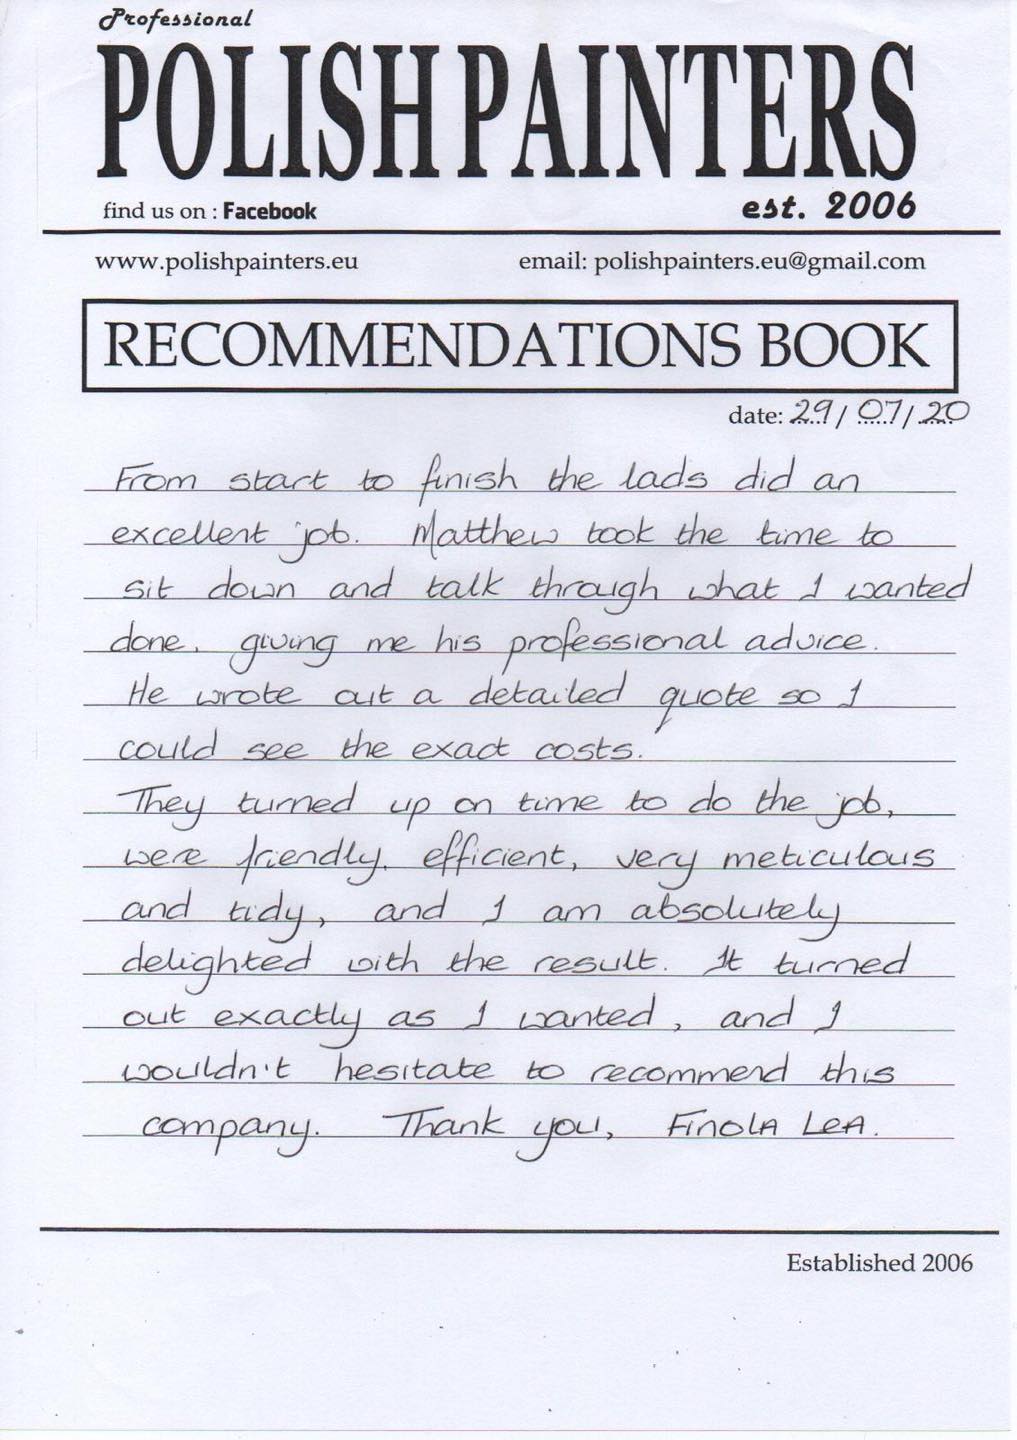 Professional
POLISH PAINTERS
find us on : Facebook
est. 2006
www.polishpainters.eu
email: polishpainters.eu@gmail.com
RECOMMENDATIONS BOOK
date: 29/ 07/ 20
From start to finish the lads did an
excellent job. Matthew took the time to
sit down and talk through what I wanted
done, giving me his professional advice.
He wrote out a detailed quote so I
could see the exact costs.
They turned up on time to do the job,
were friendly, efficient, very meticulous
and tidy, and I am absolutely
delighted with the result. It turned
out exactly as I wanted, and I
wouldn't hesitate to recommend this
company. Thank you, Finola Lea.
Established 2006